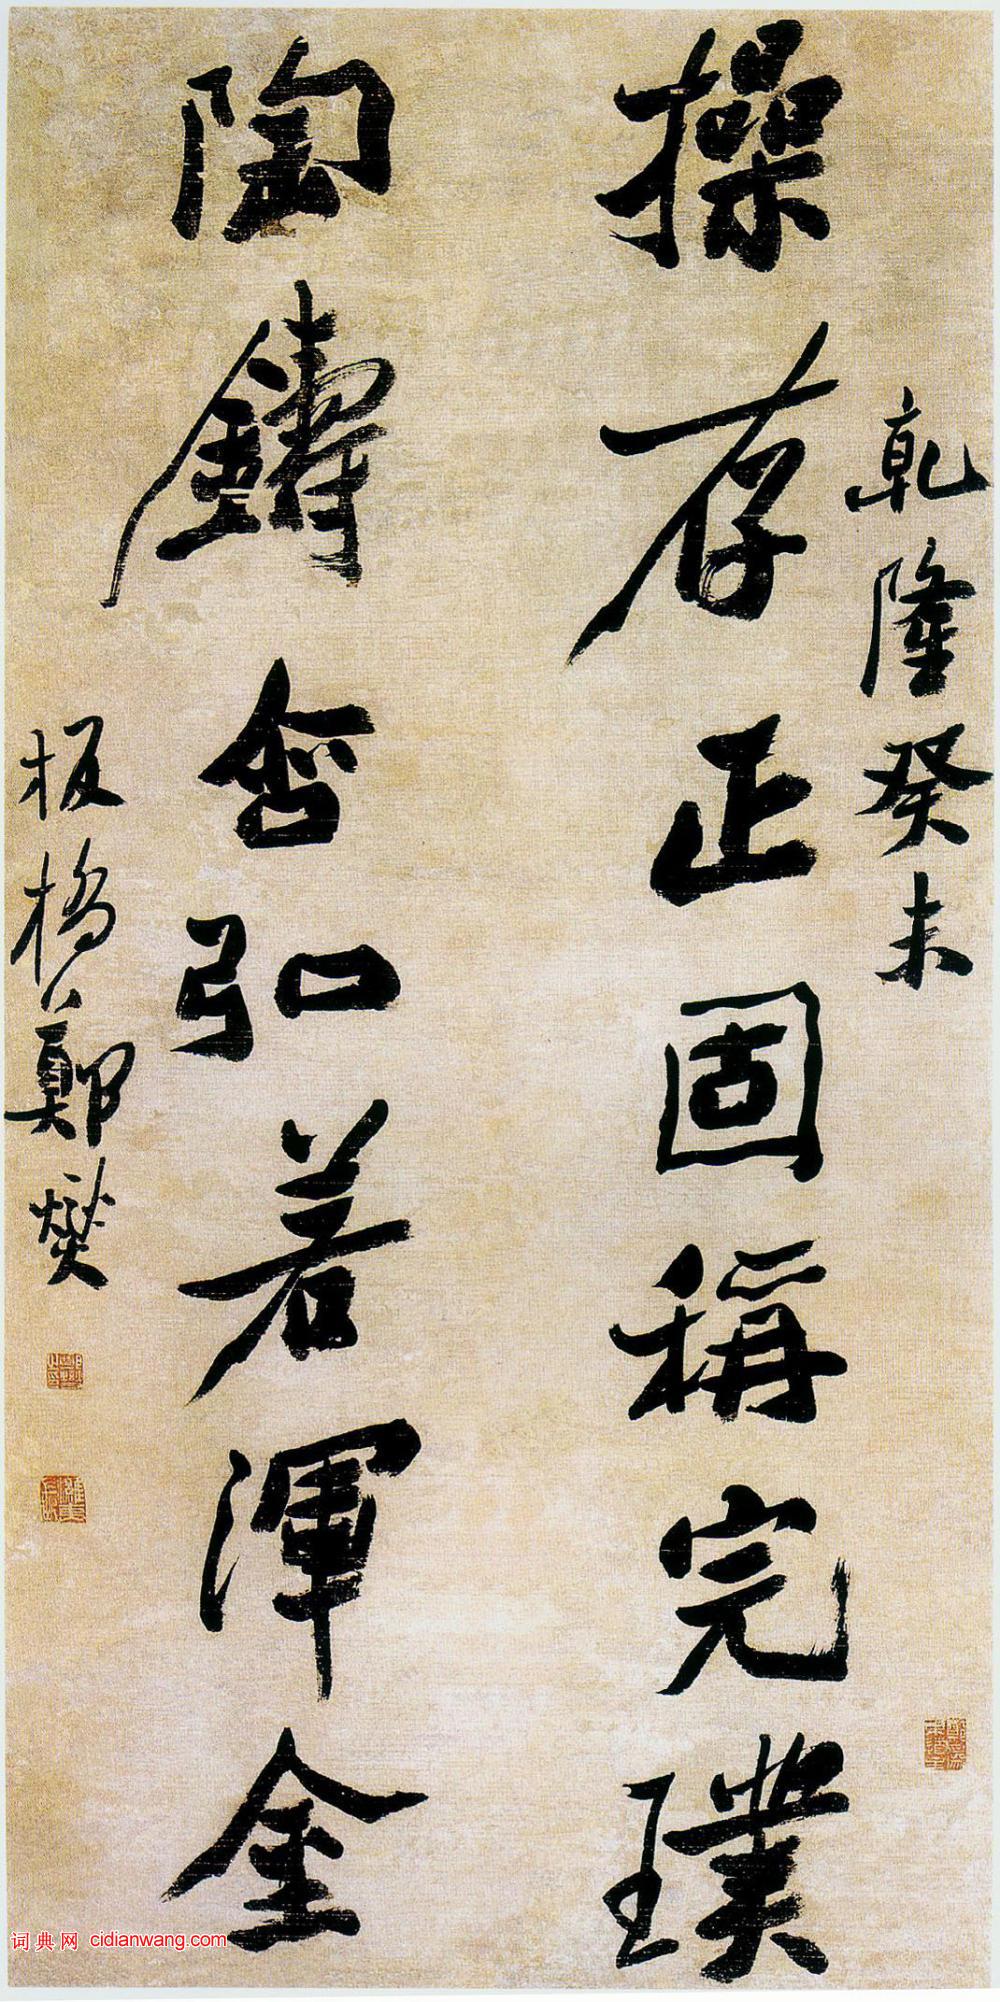 乾隆癸未
操存正固稱完璞
陶鑄含弘若渾金
板橋鄭燮
词典网 cidianwang.com